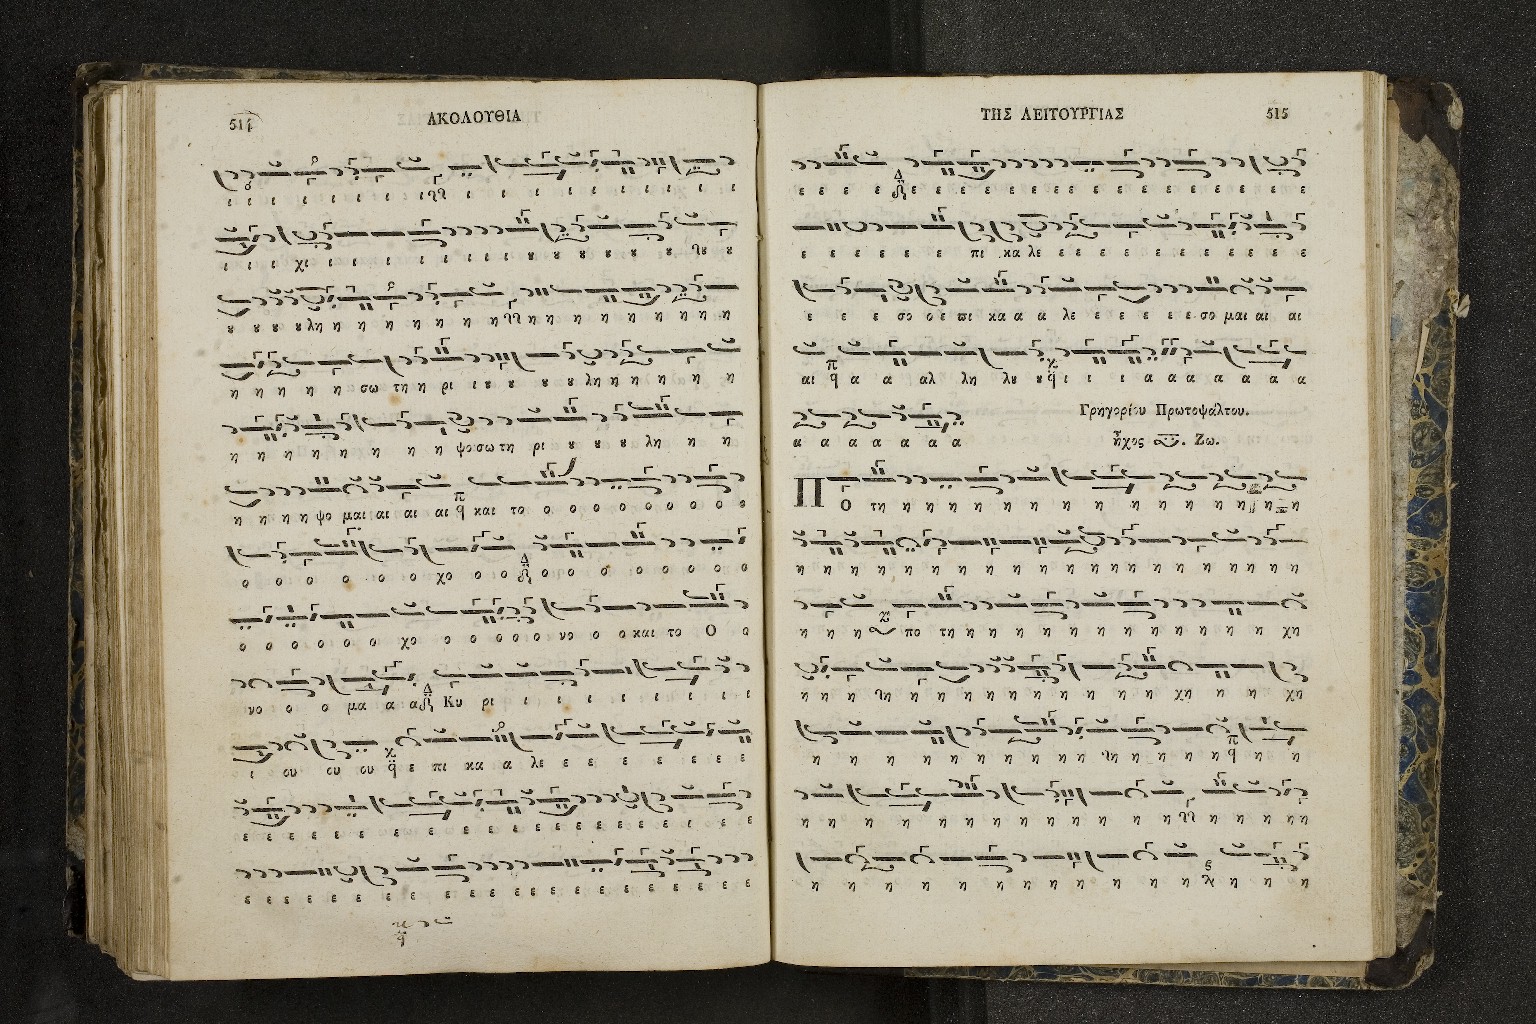 514
ΑΚΟΛΟΥΘΙΑ
ι ι ι ι ι ι ι ι ι ι ι ι ι ι ι ι ι ι
ι ι ι χι ι ι ι ι ι ι ι ι ȣ ȣ ȣ ȣ ȣ ȣ ȣ ȣ
ȣ ȣ ȣ ȣ λη η η η η η η η η η η η η η η η
η η η η σω τη η ρι ι ȣ ȣ ȣ ȣ λη η η η η η
η η η η η η η η η ψο σω τη ρι ȣ ȣ ȣ λη η η
η η η η ψο μαι αι αι αι αι π q και το ο ο ο ο ο ο ο ο ο
ο ο ο ο ο ο ο χο ο ο Δ ο ο ο ο ο ο ο ο ο
ο ο ο ο ο ο χο ο ο ο ο ο νο ο ο και το Ο ο
νο ο ο μα α α Δ Κυ ρι ι ι ι ι ι ι ι ι
ι ου ου ου q ε πι κα α λε ε ε ε ε ε ε ε
ε ε ε ε ε ε ε ε ε ε ε ε ε ε ε ε ε ι ε ε
ε ε ε ε ε ε ε ε ε ε ε ε ε ε ε ε ε ε ε
ΤΗΣ ΛΕΙΤΟΥΡΓΙΑΣ
515
ε ε ε ε Δ ε ε ε ε ε ε ε ε ε ε ε ε ε ε ε ε ε
ε ε ε ε ε ε πι κα λε ε ε ε ε ε ε ε ε ε ε ε
ε ε ε σο ο ε πι κα α α λε ε ε ε ε ε σο μαι αι αι
αι π q α α αλ λη λȣ ȣ q ι ι ι α α α α α α α
α α α α α α α
Γρηγορίου Πρωτοψάλτου.
ἦχος Ζω.
Π ο τη η η η η η η η η η η η η η η η
η η η η η η η η η η η η η η η η η η η η
η η η πο τη η η η η η η η η η η η η η χη
η η η η η η η η η η η η η η χη η η χη
η η η η η η η η η η η η η η π q η η
η η η η η η η η η η η η η η η η η
η η η η η η η η η η η η η η